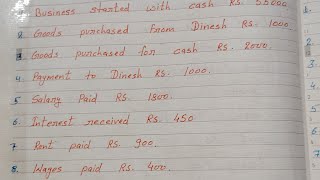 Business started with cash Rs. 55000.
2. Goods purchased from Dinesh Rs. 1000
3 Goods purchased for cash Rs. 2000.
4. Payment to Dinesh Rs. 1000.
5 Salary Paid Rs. 1800.
6. Interest received Rs. 450
7 Rent paid Rs. 900.
8. Wages paid Rs. 400.